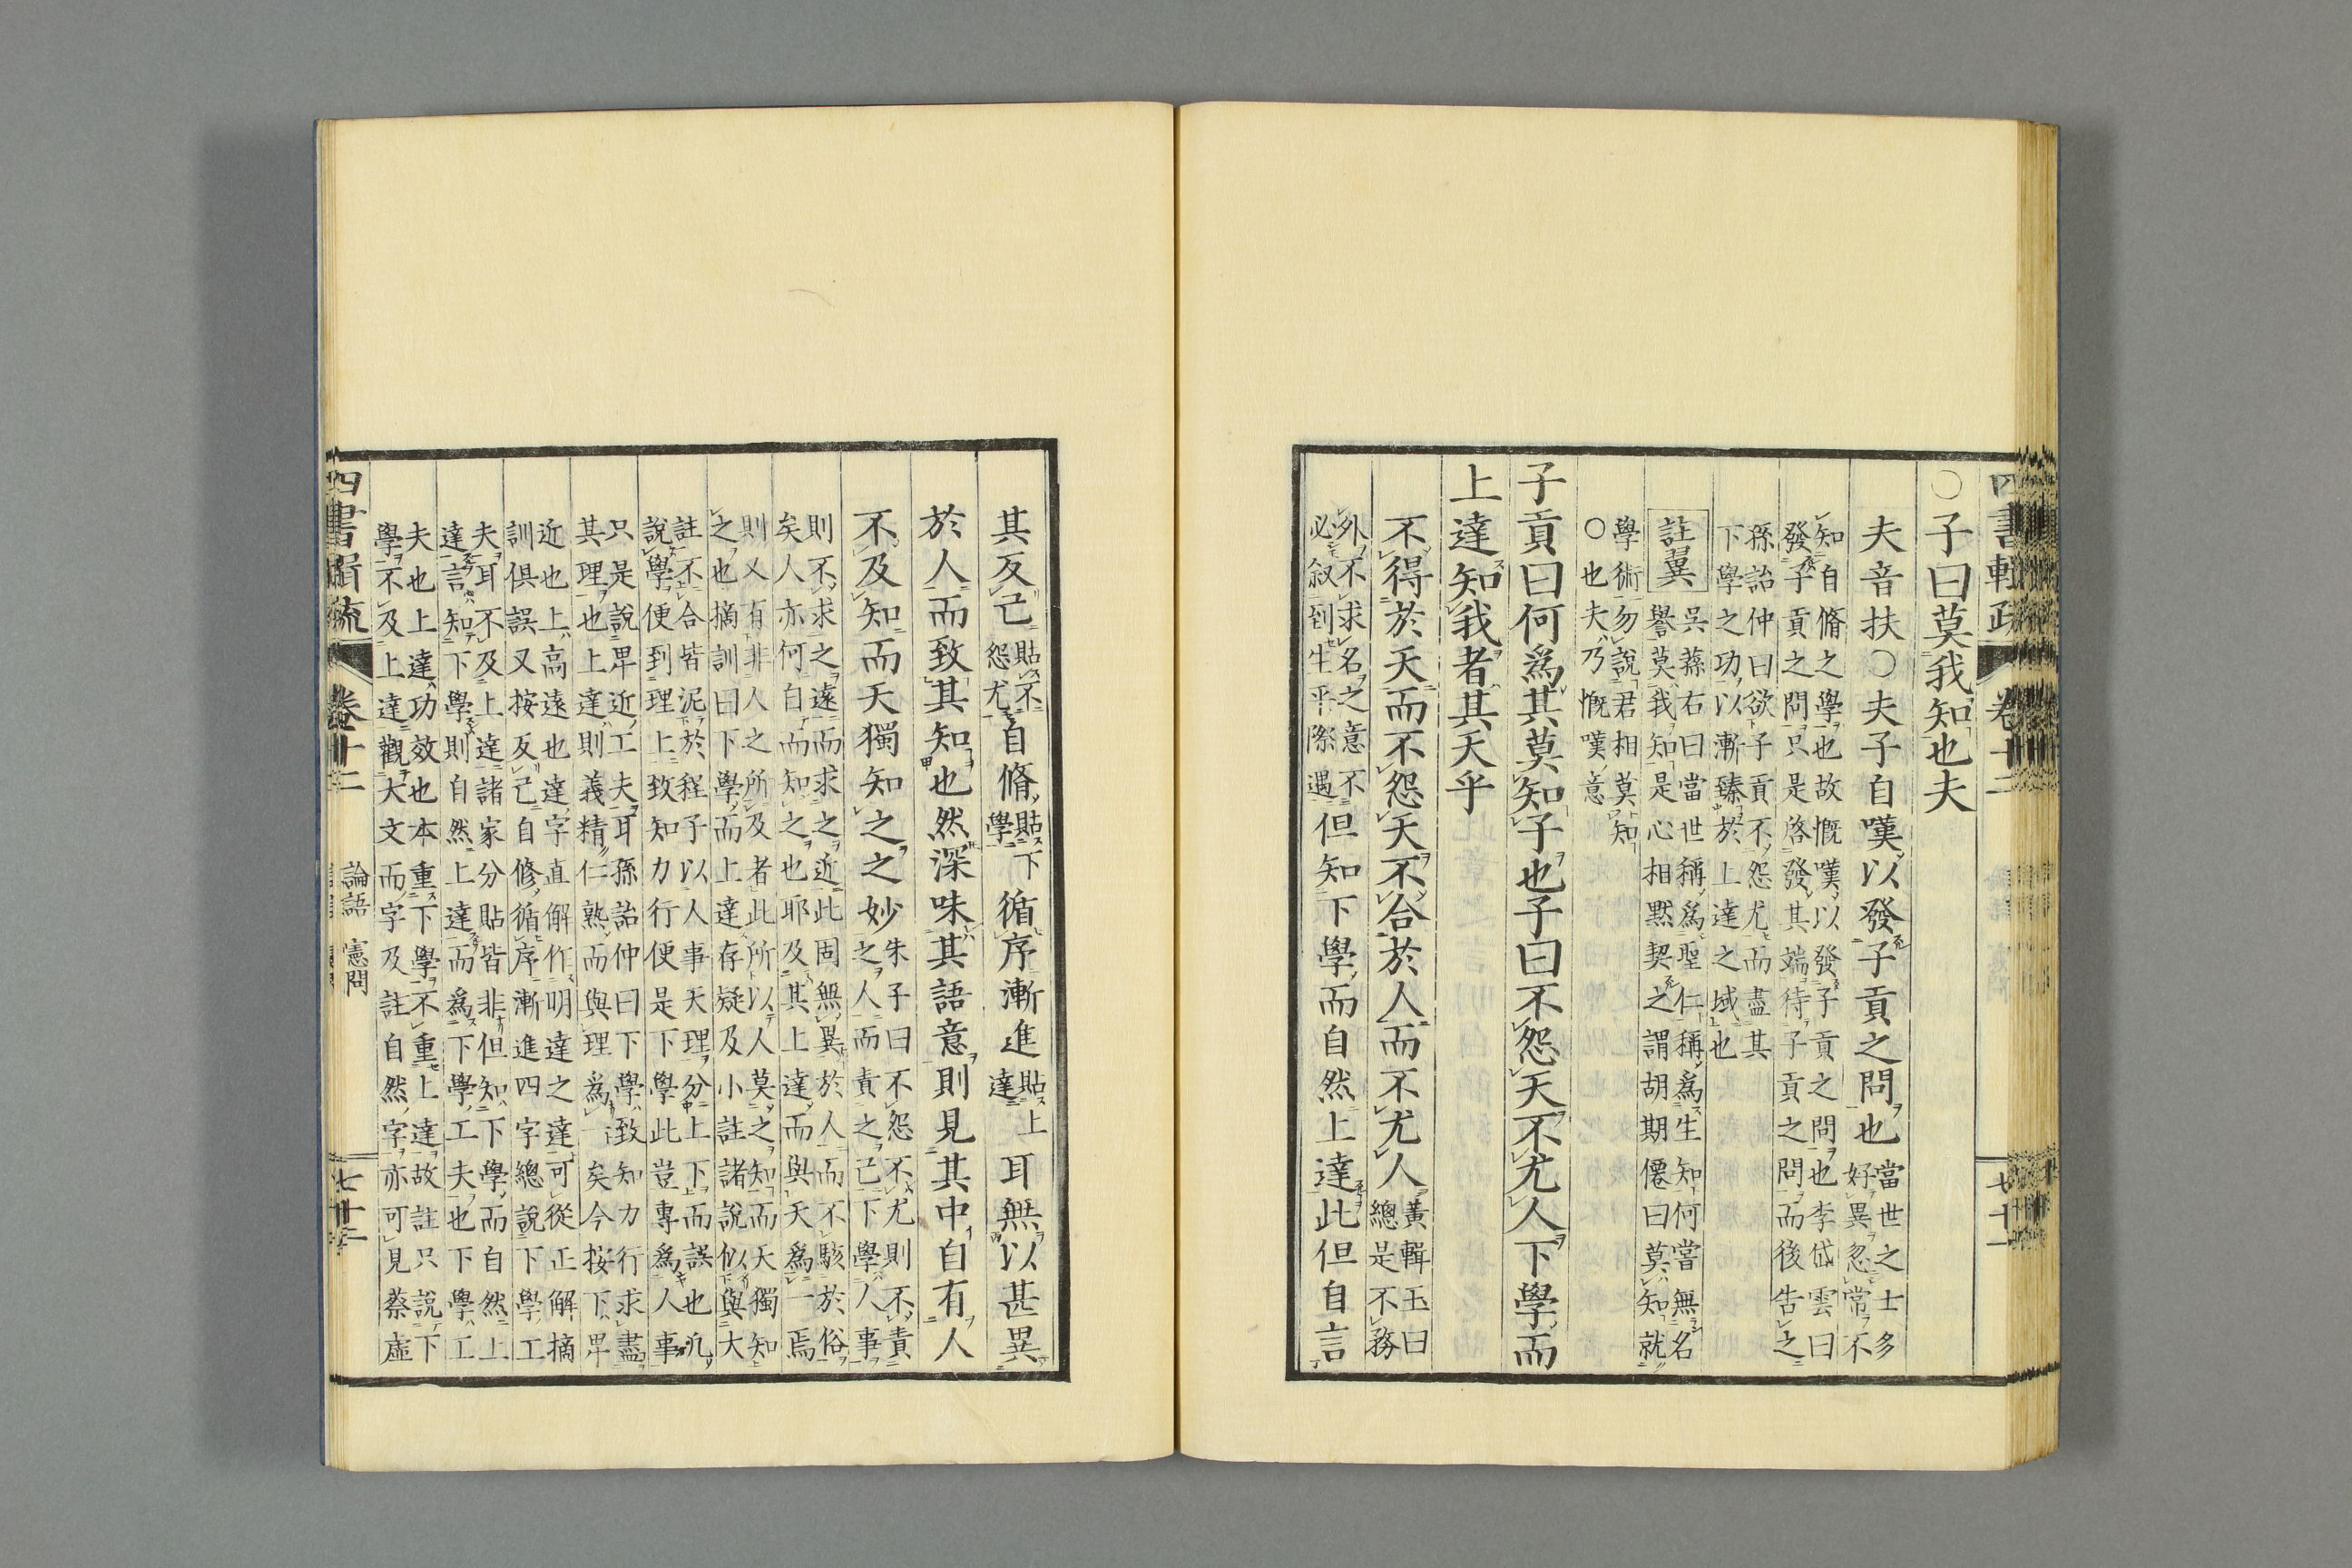 四書輯疏 卷十二 七十一
○子曰莫我知也夫
夫音扶○夫子自嘆以發子貢之問也當世之士多
好異忽常不
知自脩之學也故慨嘆以發子貢之問也李岱雲曰
發子貢之問只是啓發其端待子貢之問而後告之
孫詒仲曰欲子貢不怨尤而盡其
下學之功以漸臻於上達之域也
註翼 吳蓀右曰當世稱爲聖仁稱爲生知何嘗無名
譽莫我知是心相默契之謂胡期僊曰莫知就
學術勿說君相莫知
○也夫乃慨嘆意
子貢曰何爲其莫知子也子曰不怨天不尤人下學而
上達知我者其天乎
不得於天而不怨天不合於人而不尤人黃輯玉曰
總是不務
外不求名之意不
必叙到生平際遇但知下學而自然上達此但自言
其反己貼不
怨尤自脩貼下
學循序漸進貼上
達耳無以甚異
於人而致其知也然深味其語意則見其中自有人
不及知而天獨知之之妙朱子曰不怨不尤則不責
之人而責之己下學人事
則不求之遠而求之近此固無異於人而不駭於俗
矣人亦何自而知之也耶及其上達而與天爲一焉
則又有非人之所及者此所以人莫之知而天獨知
之也摘訓曰下學而上達存疑及小註諸說似與大
註不合皆泥於程子以人事天理分上下而誤也凢
說學便到理上致知力行便是下學此豈專爲人事
只是說卑近工夫耳孫詒仲曰下學致知力行求盡
其理也上達則義精仁熟而與理爲一矣今按下卑
近也上高遠也達字直解作明達之達可從正解摘
訓俱誤又按反己自修循序漸進四字總說下學工
夫耳不及上達諸家分貼皆非但知下學而自然上
達言知下學則自然上達而爲下學工夫也下學工
夫也上達功效也本重下學不重上達故註只說下
學不及上達觀大文而字及註自然字亦可見蔡虛
四書輯疏 卷十二 論語 憲問 七十二